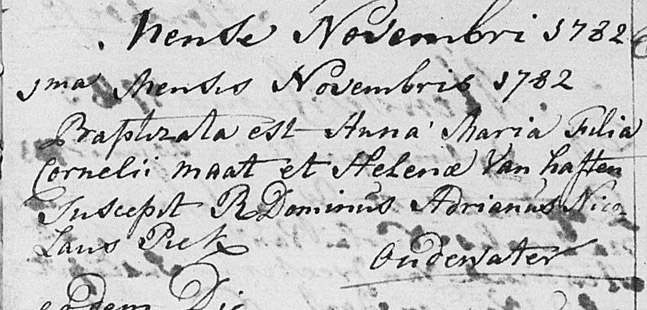 Mense Novembri 1782
1ma Mensis Novembris 1782
Baptizata est Anna Maria Filia
Cornelii maat et Helenæ Van haften
Suscepit R Dominus Adrianus Nico-
laus Pick
Oudewater
eodem Die